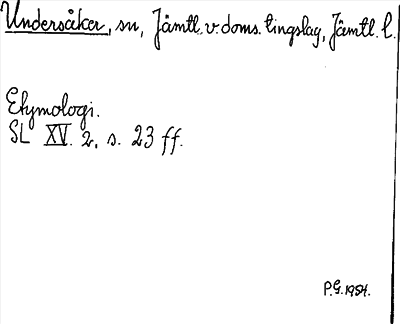 Undersåker, sn, Jämtl. v. doms. tingslag, Jämtl. l.
Etymologi.
SL XV. 2, s. 23 ff.
P.G. 1954.